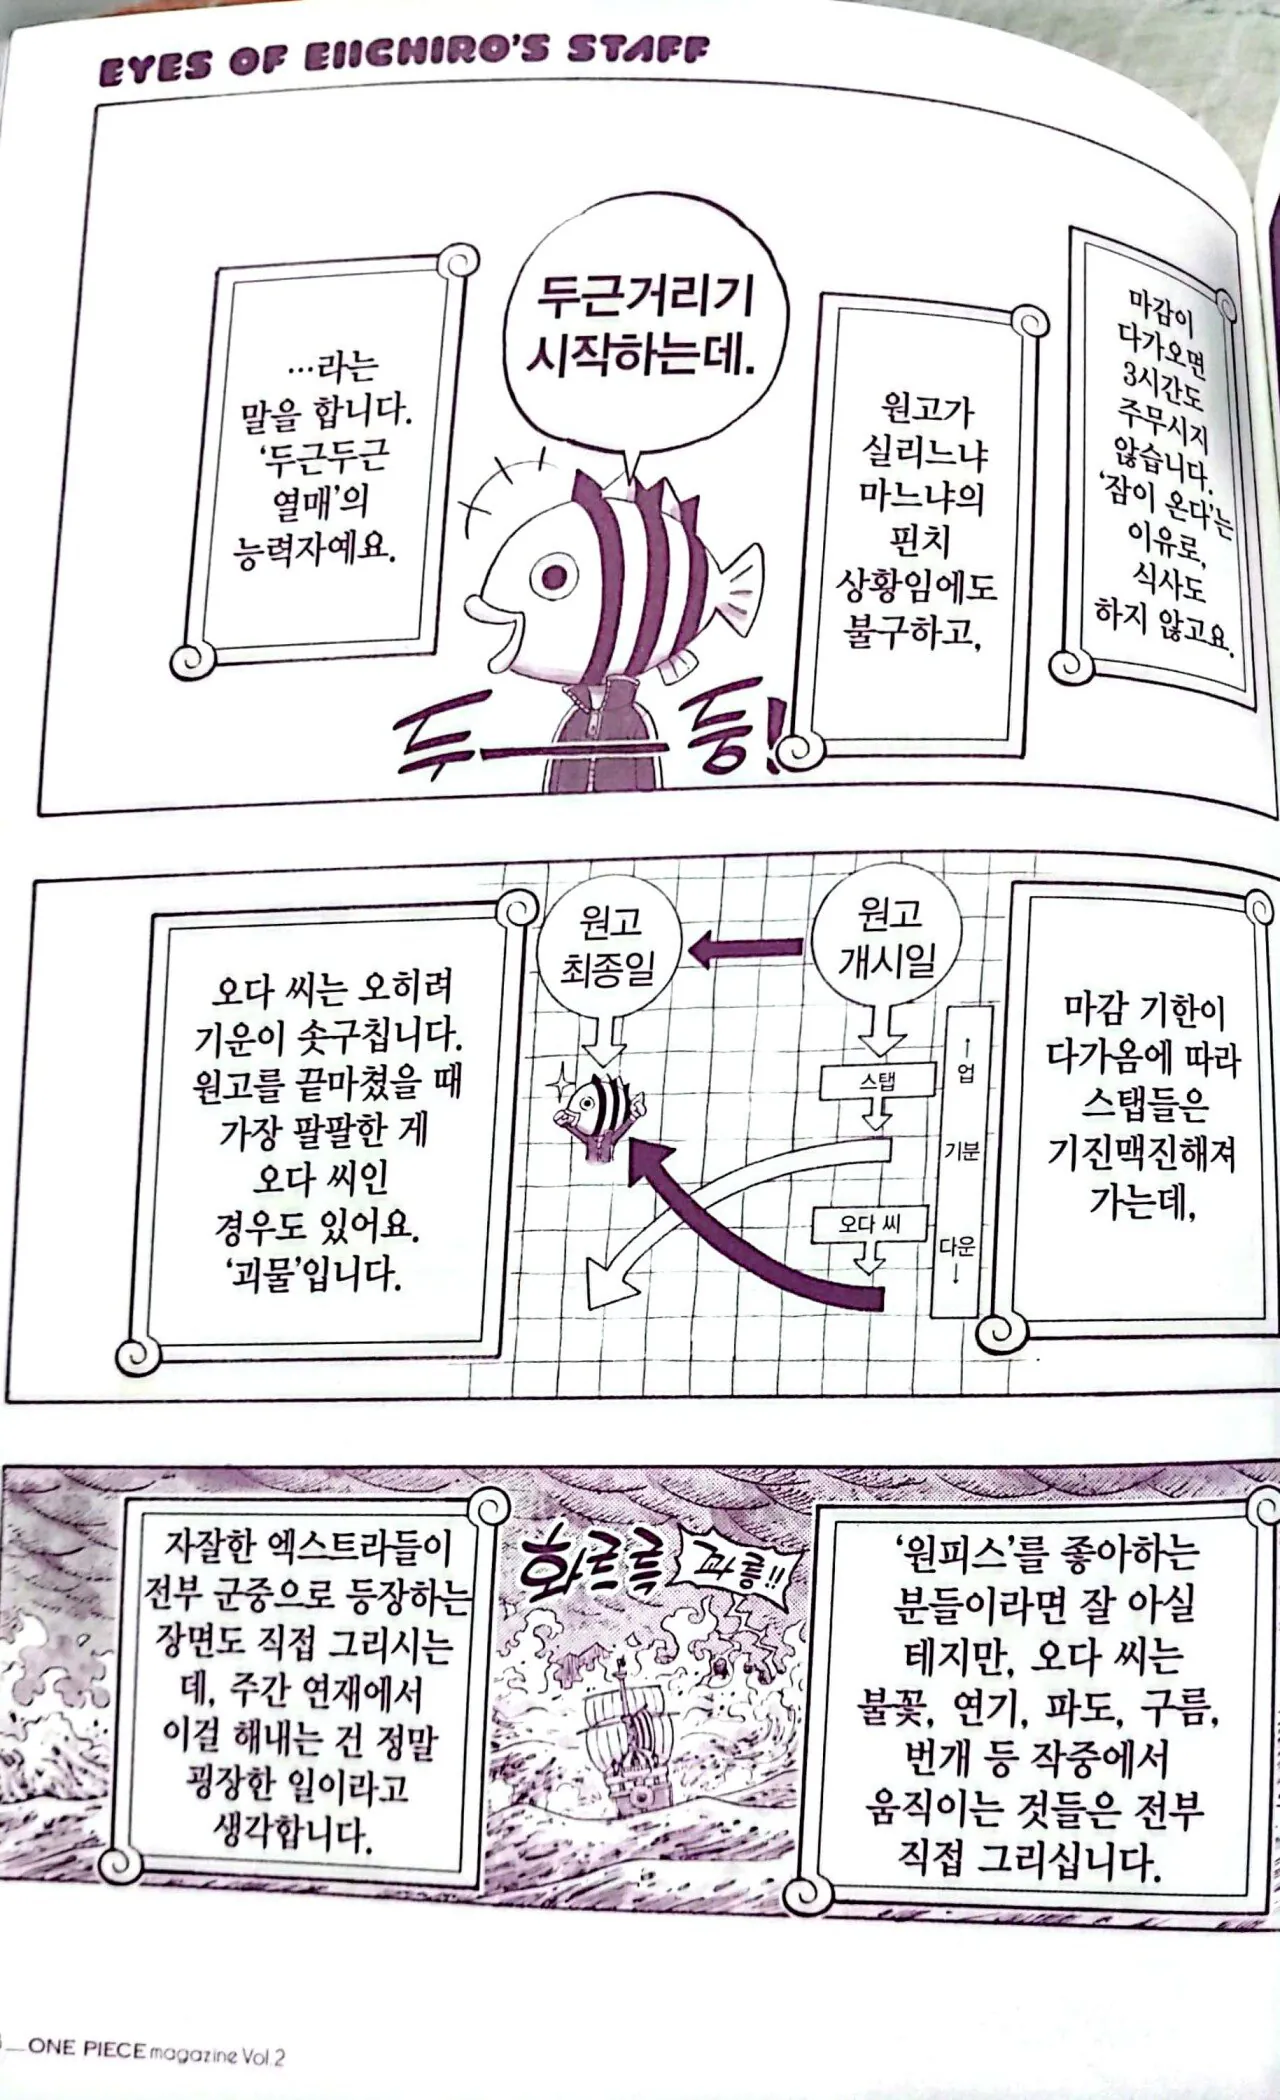 EYES OF EIICHIRO'S STAFF
마감이
다가오면
3시간도
주무시지
않습니다.
'잠이 온다'는
이유로,
식사도
하지 않고요.
원고가
실리느냐
마느냐의
핀치
상황임에도
불구하고,
두근거리기
시작하는데.
두――둥!
…라는
말을 합니다.
'두근두근
열매'의
능력자예요.
마감 기한이
다가옴에 따라
스탭들은
기진맥진해져
가는데,
원고
개시일
원고
최종일
↑
업
기분
다운
↓
스탭
오다 씨
오다 씨는 오히려
기운이 솟구칩니다.
원고를 끝마쳤을 때
가장 팔팔한 게
오다 씨인
경우도 있어요.
'괴물'입니다.
'원피스'를 좋아하는
분들이라면 잘 아실
테지만, 오다 씨는
불꽃, 연기, 파도, 구름,
번개 등 작중에서
움직이는 것들은 전부
직접 그리십니다.
콰릉!!
화르륵
자잘한 엑스트라들이
전부 군중으로 등장하는
장면도 직접 그리시는
데, 주간 연재에서
이걸 해내는 건 정말
굉장한 일이라고
생각합니다.
ONE PIECE magazine Vol.2